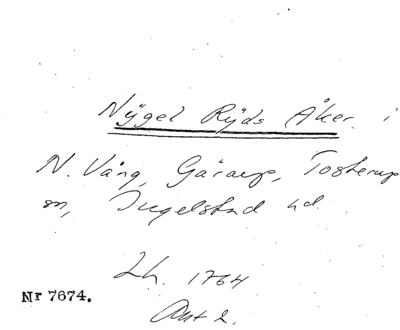 Nÿgel Ryds Åker i
N. Vång, Gårarp, Tosterup
sn, Ingelstad hd.
Lh. 1764
Akt 2.
Nr 7674.